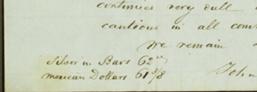 continues very dull
cautious in all
We remain
Silver in Bars 62
Mexican Dollars 61 3/8
John